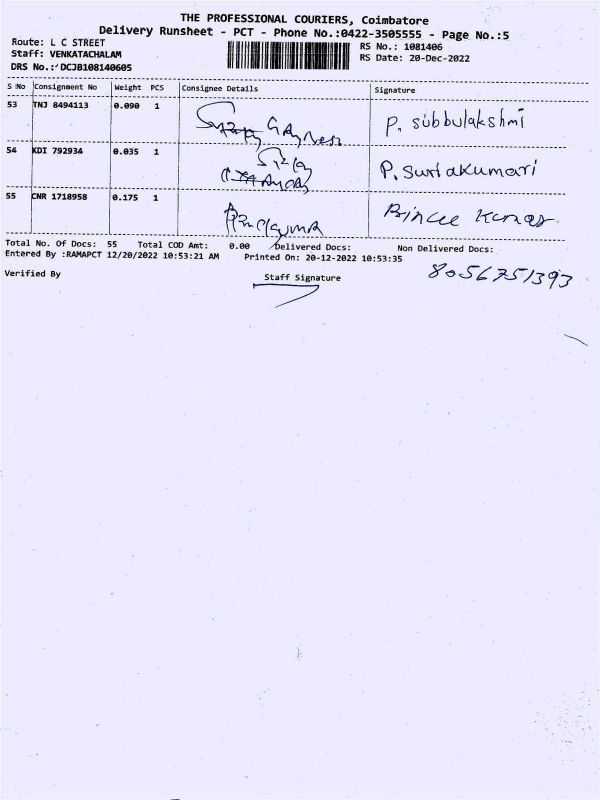 THE PROFESSIONAL COURIERS, Coimbatore
Delivery Runsheet - PCT - Phone No.:0422-3505555 - Page No.:5
Route: L C STREET
RS No.: 1081406
Staff: VENKATACHALAM
RS Date: 20-Dec-2022
DRS No.: DCJB108140605
S No Consignment No Weight PCS Consignee Details Signature
53 TNJ 8494113 0.090 1 P. subbulakshmi
54 KDI 792934 0.035 1 P. Suriakumari
55 CNR 1718958 0.175 1 Prince Kumar
Total No. Of Docs: 55 Total COD Amt: 0.00 Delivered Docs: Non Delivered Docs:
Entered By :RAMAPCT 12/20/2022 10:53:21 AM Printed On: 20-12-2022 10:53:35
8056751393
Verified By
Staff Signature